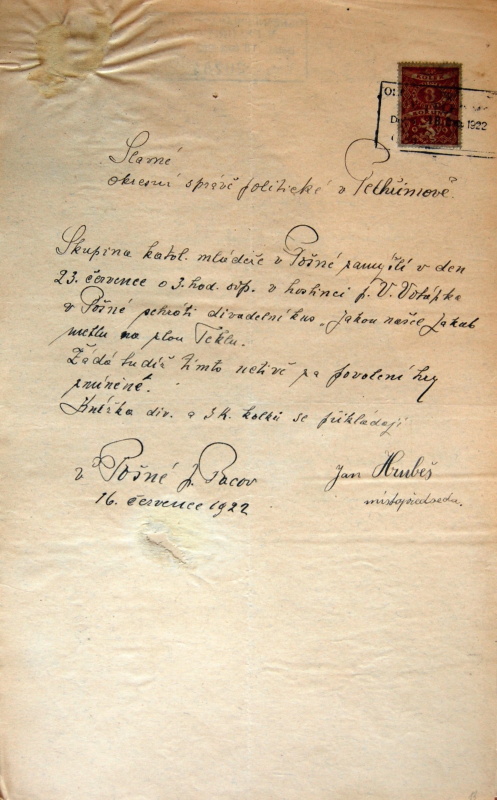 3
1922
Slavné
okresní správě politické v Pelhřimově.
Skupina katol. mládeže v Pošné zamýšlí v den
23. července o 3. hod. odp. v hostinci p. V.
v Pošné sehráti divadelní kus „Jakou našel Jakub
metlu na zlou Teklu.
Žádá tudíž tímto uctivě za povolení hry
zmíněné.
Knížka div. a 3 K. kolků se přikládají
v Pošné p. Pacov
16. července 1922
Jan Hrubeš
místopředseda.